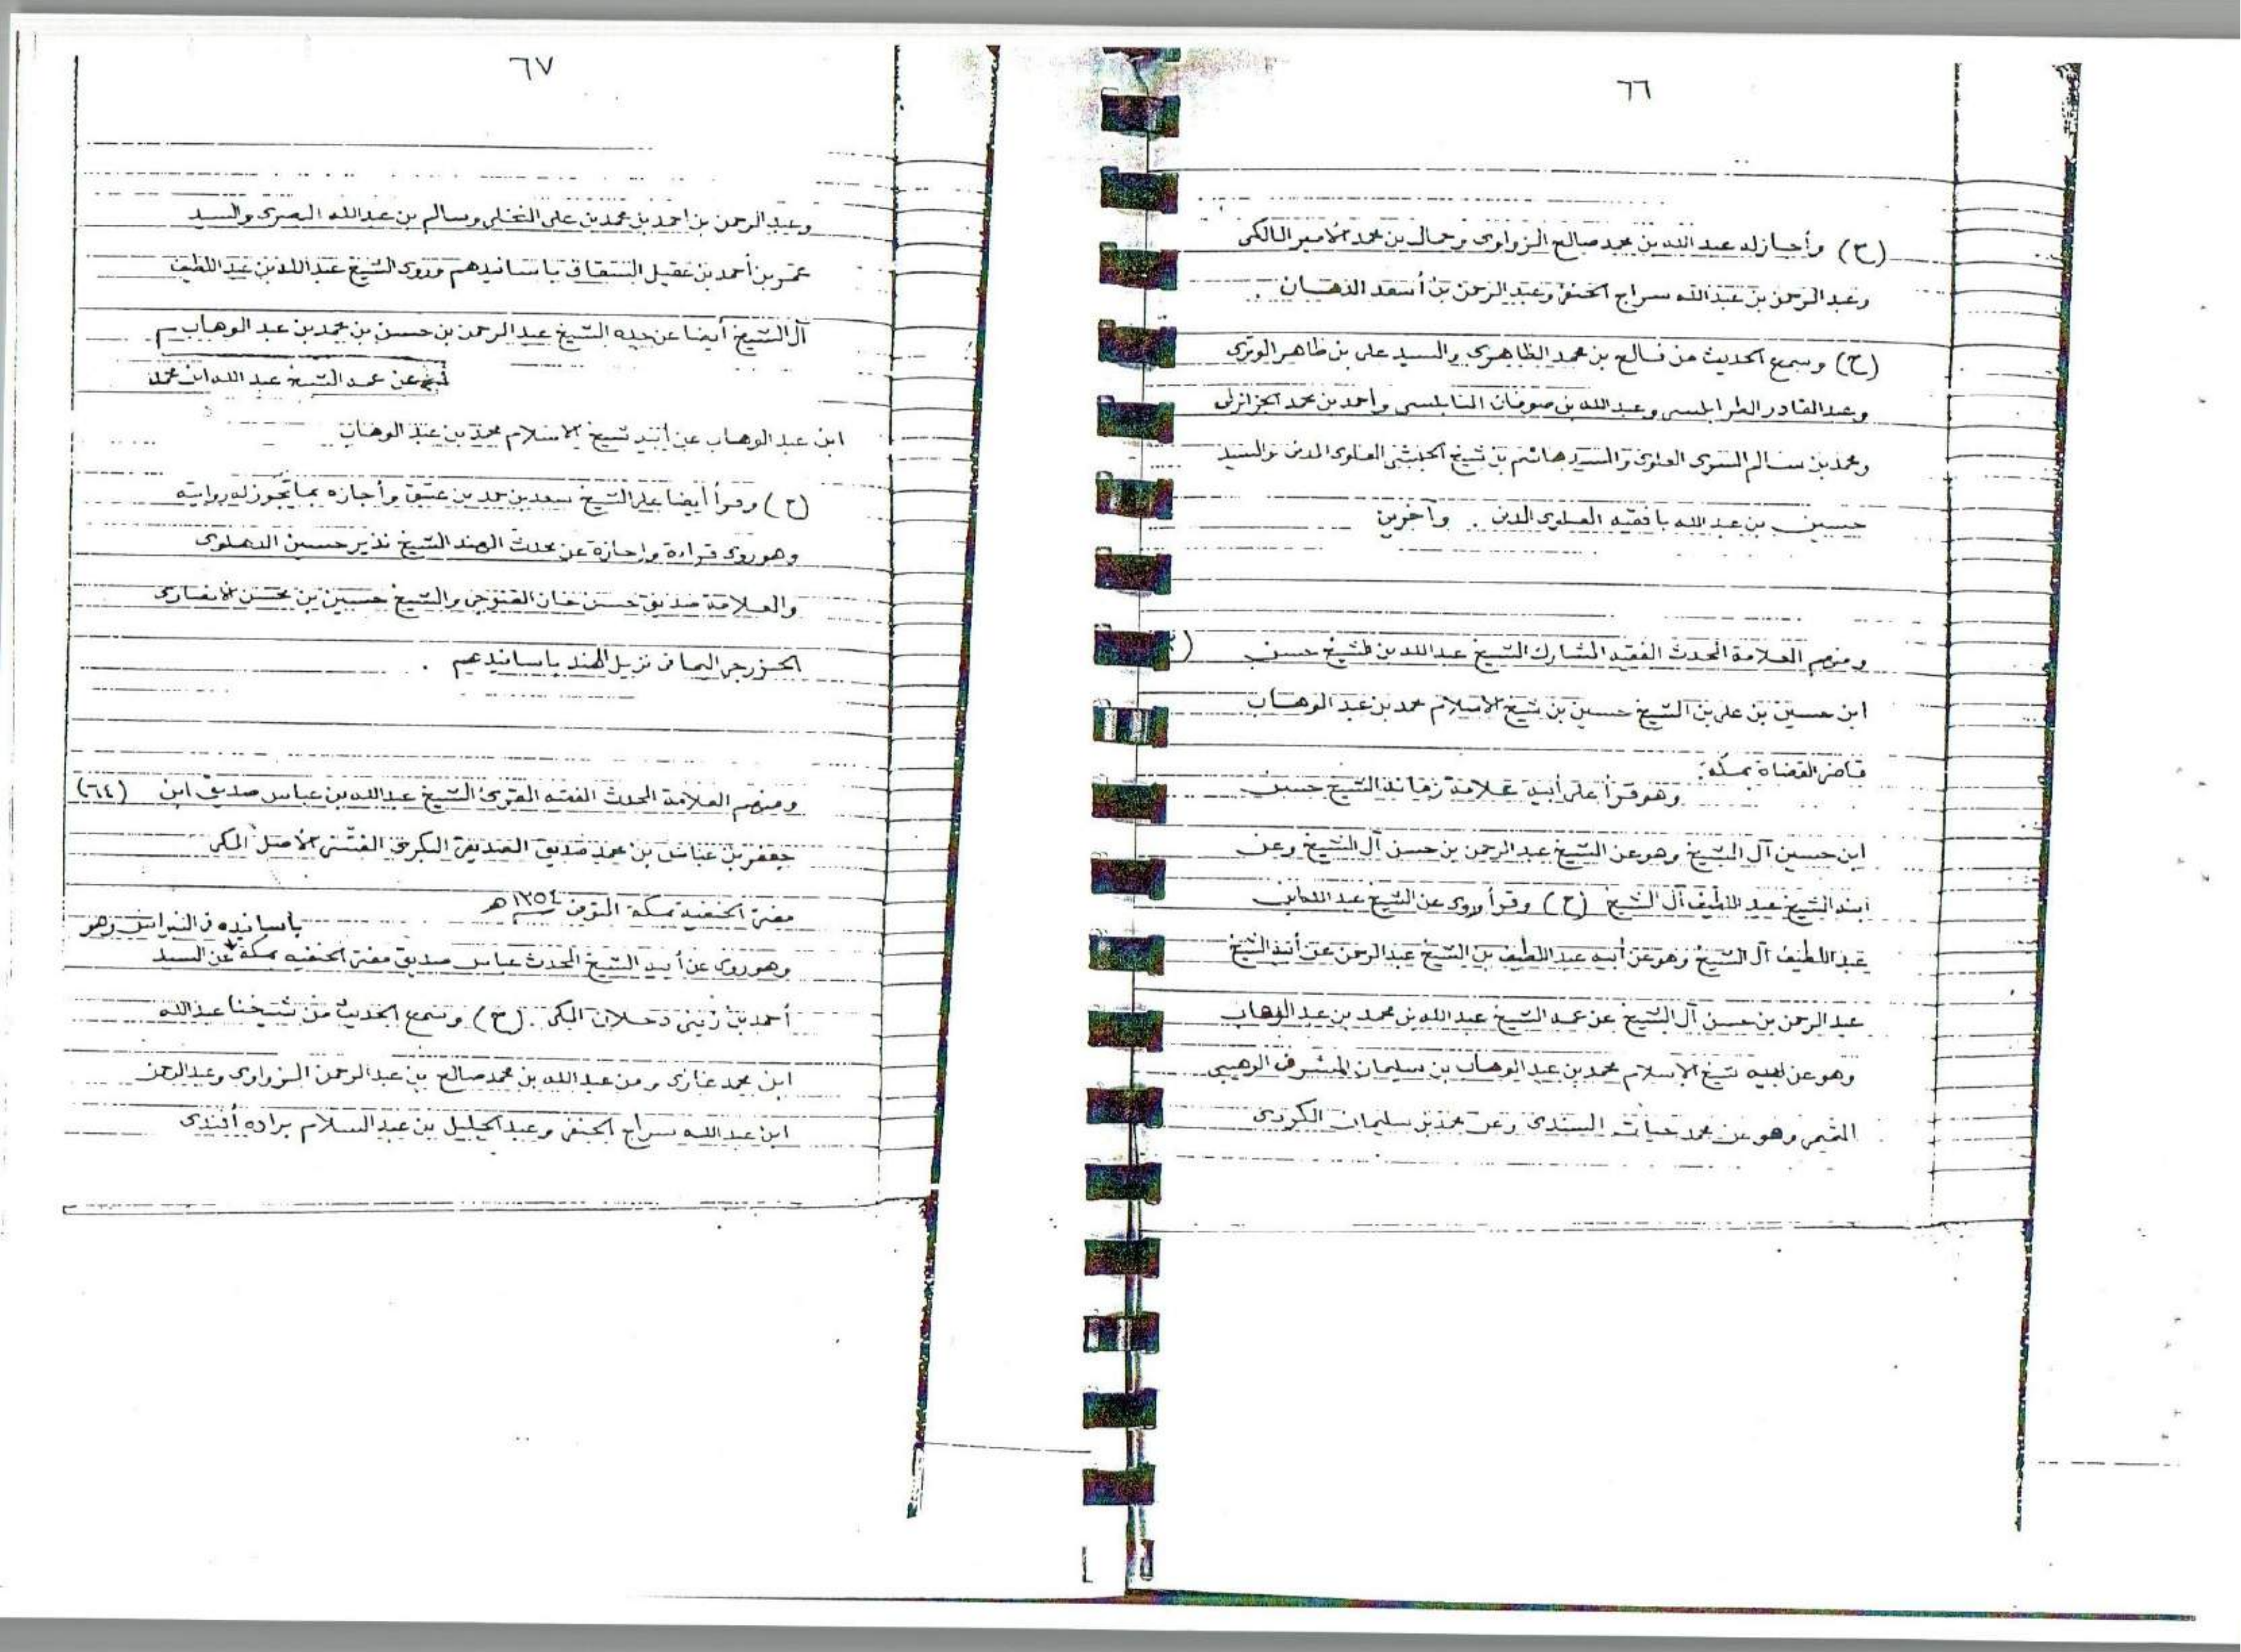 ٦٦
(ح) وأجازله عبد الله بن محمد صالح الزواوى وجمال بن محمد الأمير المالكى
وعبد الرحمن بن عبد الله سراج الحنفى وعبد الرحمن بن أسعد الدهان .
(ح) وسمع الحديث من فالح بن محمد الظاهرى والسيد على بن ظاهر الوترى
وعبد القادر الطرابلسى وعبد الله بن صوفان النابلسى وأحمد بن محمد الجزائرلى
ومحمد بن سالم السرى العلوى والسيد هاشم بن شيخ الحبشى العلوى المدنى والسيد
حسين بن عبد الله بافقيه العلوى المدنى . وآخرين
ومنهم العلامة المحدث الفقيه المشارك الشيخ عبد الله بن الشيخ حسن
ابن حسين بن على بن الشيخ حسين بن شيخ الاسلام محمد بن عبد الوهاب
قاضى القضاة بمكة.
وهو قرأ على أبيه علامة زمانه الشيخ حسن
ابن حسين آل الشيخ وهو عن الشيخ عبد الرحمن بن حسن آل الشيخ وعن
ابنه الشيخ عبد اللطيف آل الشيخ (ح) وقرأ وروى عن الشيخ عبد الله بن
عبد اللطيف آل الشيخ وهو عن أبيه عبد اللطيف بن الشيخ عبد الرحمن عن أبيه الشيخ
عبد الرحمن بن حسن آل الشيخ عن عمه الشيخ عبد الله بن محمد بن عبد الوهاب
وهو عن أبيه شيخ الاسلام محمد بن عبد الوهاب بن سليمان المشرفى الوهيبى
التميمى وهو عن محمد حيات السندى وعن محمد بن سليمان الكردى
٦٧
وعبد الرحمن بن احمد بن محمد بن على النخلى وسالم بن عبد الله البصرى والسيد
عمر بن أحمد بن عقيل السقاف باسانيدهم وروى الشيخ عبد الله بن عبد اللطيف
آل الشيخ أيضا عن جده الشيخ عبد الرحمن بن حسن بن محمد بن عبد الوهاب
عن عمه الشيخ عبد الله ابن محمد
ابن عبد الوهاب عن أبيه شيخ الاسلام محمد بن عبد الوهاب
(ح) وقرأ أيضا على الشيخ سعد بن حمد بن عتيق وأجازه بما تجوز له روايته
وهو روى قراءة وإجازة عن محدث الهند الشيخ نذير حسين الدهلوى
والعلامة صديق حسن خان القنوجى والشيخ حسين بن محسن الانصارى
الخزرجى اليمانى نزيل الهند باسانيدهم .
ومنهم العلامة المحدث الفقيه المقرئ الشيخ عبد الله بن عباس صديق ابن (٦٤)
جعفر بن عباس بن محمد صديق الصديقى البكرى الفتنى الأصل المكى
مفتى الحنفية بمكة المتوفى ١٣٥٤ هـ
باسانيده وهو
وهو روى عن أبيه الشيخ المحدث عباس صديق مفتى الحنفيه بمكة عن السيد
أحمد بن زينى دحلان المكى . (ح) وسمع الحديث من شيخنا عبد الله
ابن محمد غازى ومن عبد الله بن محمد صالح بن عبد الرحمن الزواوى وعبد الرحمن
ابن عبد الله سراج الحنفى وعبد الجليل بن عبد السلام براده أفندى